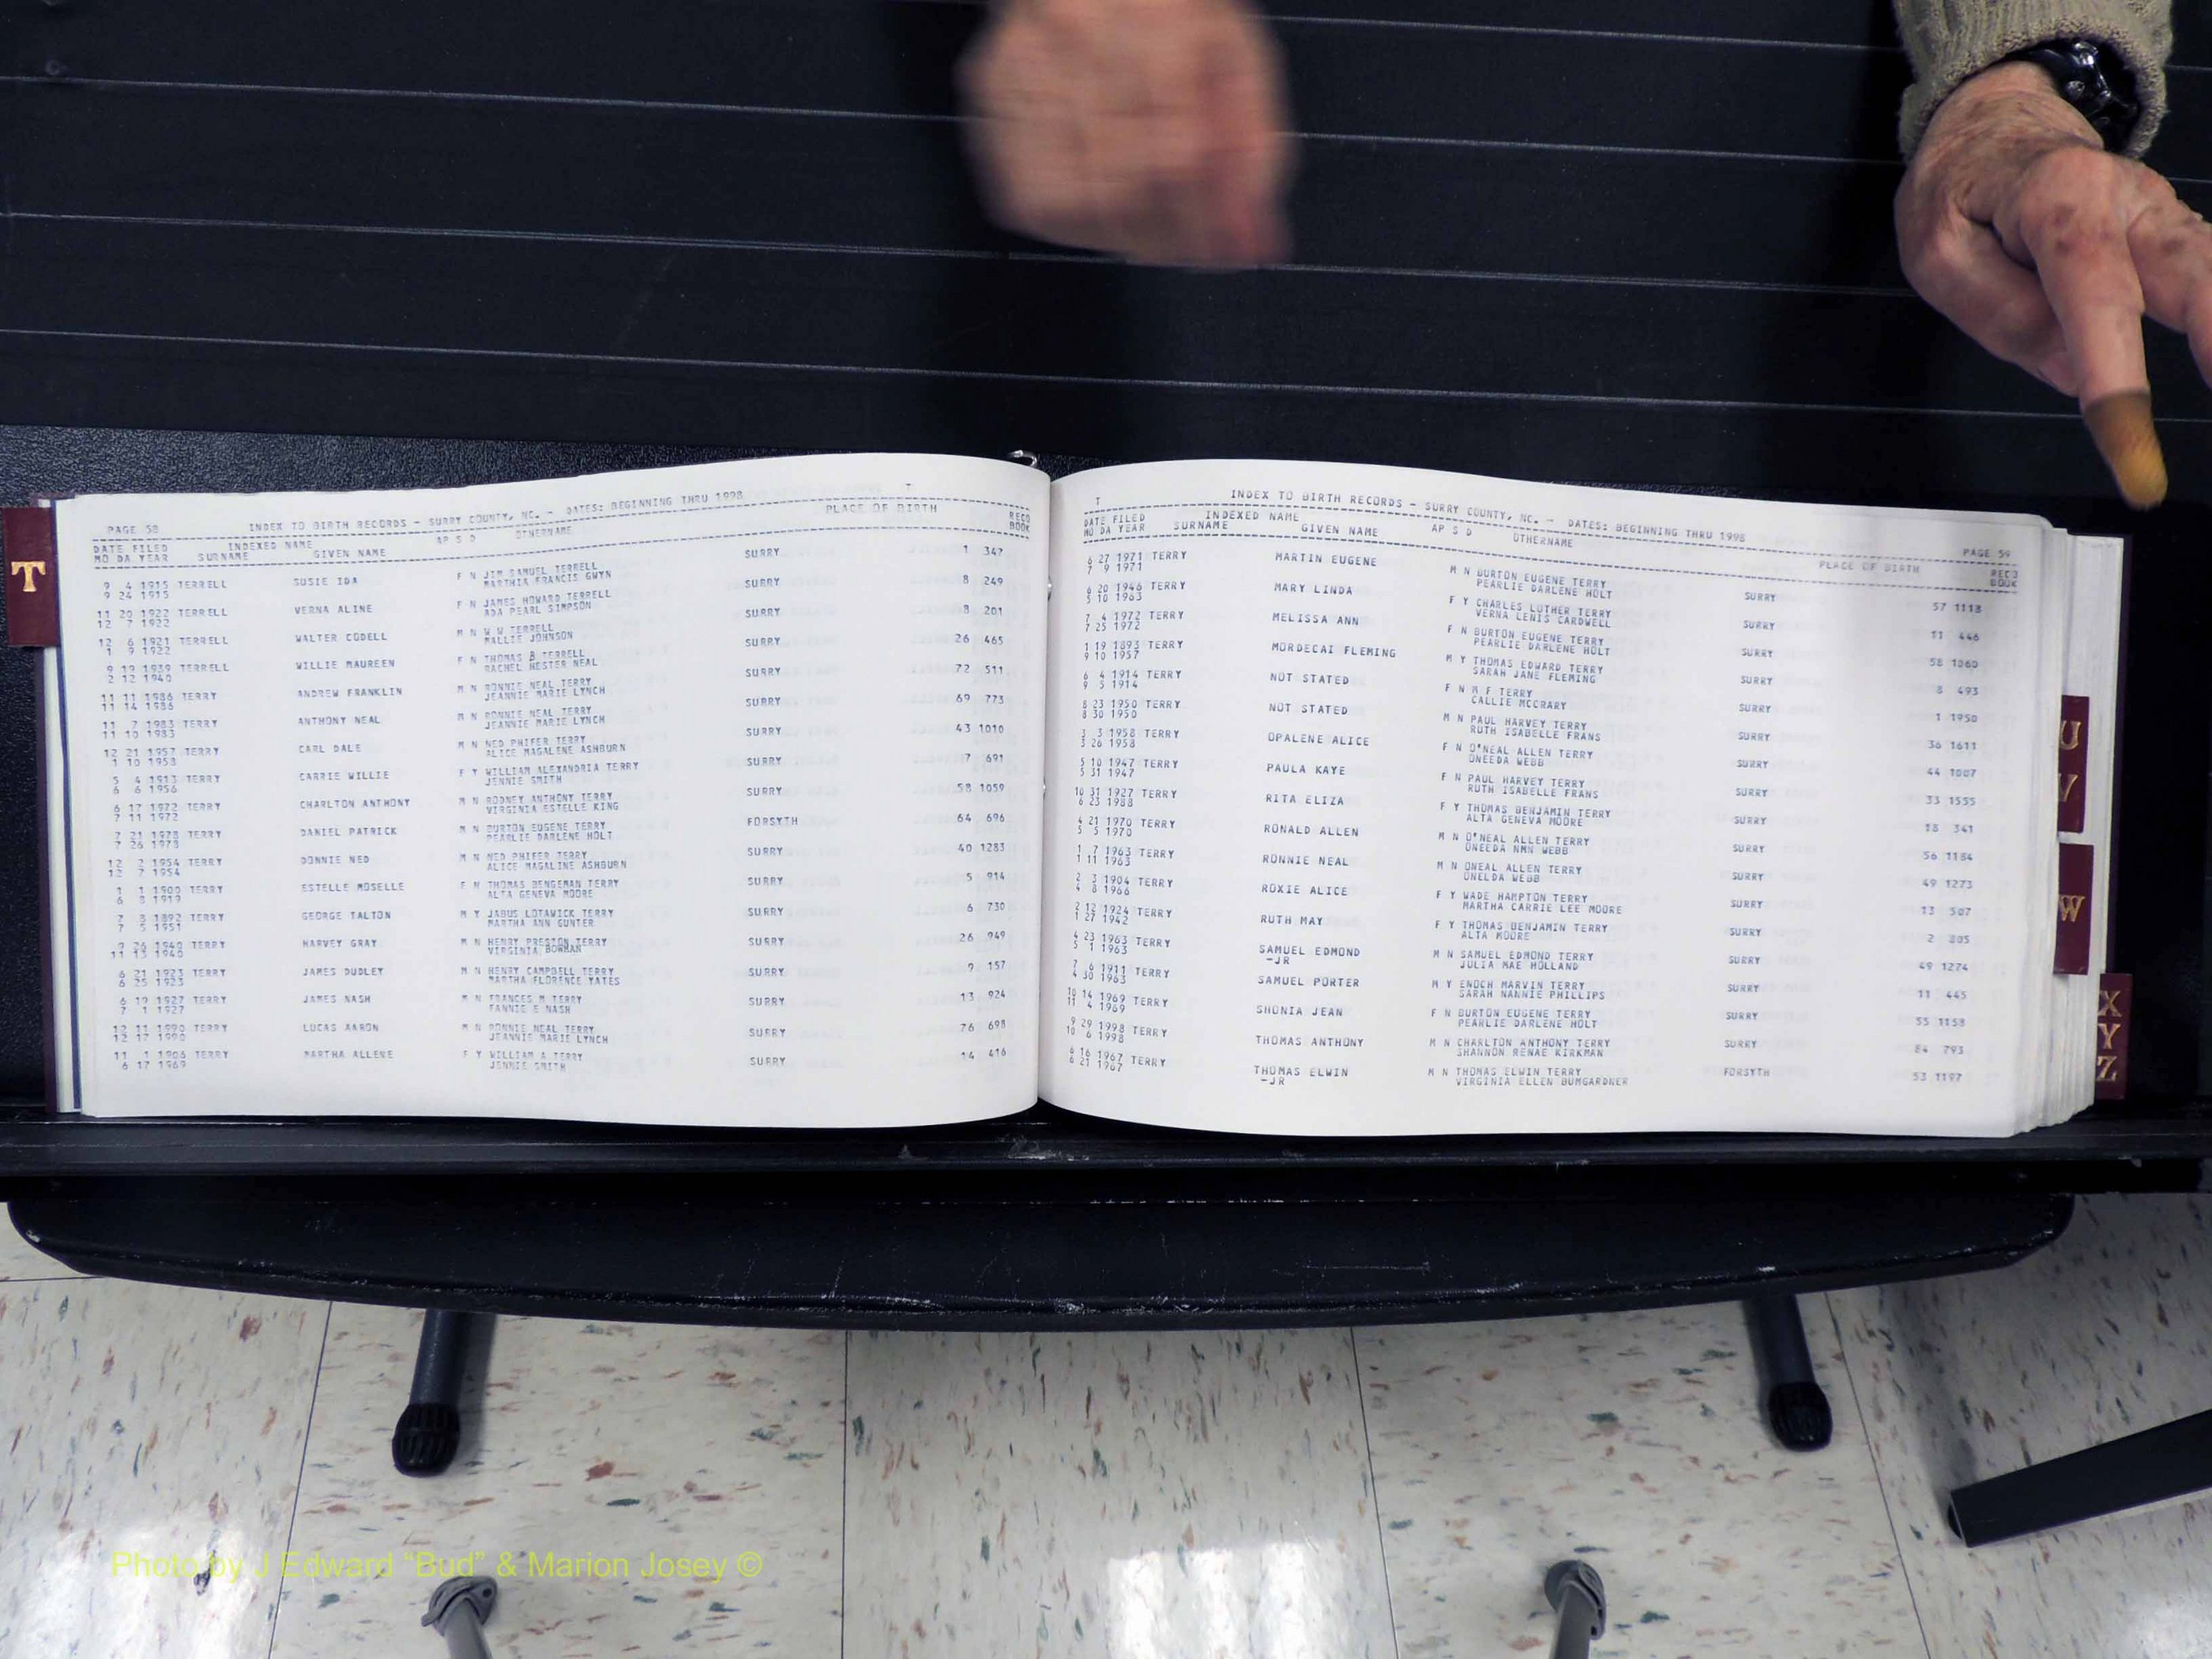 T
PAGE 58
INDEX TO BIRTH RECORDS - SURRY COUNTY, NC. - DATES: BEGINNING THRU 1998
DATE FILED INDEXED NAME AP S D OTHERNAME PLACE OF BIRTH RECD
MO DA YEAR SURNAME GIVEN NAME BOOK
9 4 1915 TERRELL SUSIE IDA F N JIM SAMUEL TERRELL SURRY 1 347
9 24 1915 MARTHIA FRANCIS GWYN
11 20 1922 TERRELL VERNA ALINE F N JAMES HOWARD TERRELL SURRY 8 249
12 7 1922 ADA PEARL SIMPSON
12 6 1921 TERRELL WALTER CODELL M N W W TERRELL SURRY 8 201
1 9 1922 MALLIE JOHNSON
9 19 1939 TERRELL WILLIE MAUREEN F N THOMAS B TERRELL SURRY 26 465
2 12 1940 RACHEL HESTER NEAL
11 11 1986 TERRY ANDREW FRANKLIN M N RONNIE NEAL TERRY SURRY 72 511
11 14 1986 JEANNIE MARIE LYNCH
11 7 1983 TERRY ANTHONY NEAL M N RONNIE NEAL TERRY SURRY 69 773
11 10 1983 JEANNIE MARIE LYNCH
12 21 1957 TERRY CARL DALE M N NED PHIFER TERRY SURRY 43 1010
1 10 1958 ALICE MAGALENE ASHBURN
5 4 1913 TERRY CARRIE WILLIE F Y WILLIAM ALEXANDRIA TERRY SURRY 7 691
6 6 1956 JENNIE SMITH
6 17 1972 TERRY CHARLTON ANTHONY M N RODNEY ANTHONY TERRY SURRY 58 1059
7 11 1972 VIRGINIA ESTELLE KING
7 21 1978 TERRY DANIEL PATRICK M N BURTON EUGENE TERRY FORSYTH 64 696
7 26 1978 PEARLIE DARLENE HOLT
12 2 1954 TERRY DONNIE NED M N NED PHIFER TERRY SURRY 40 1283
12 7 1954 ALICE MAGALINE ASHBURN
1 1 1900 TERRY ESTELLE MOSELLE F N THOMAS BENGEMAN TERRY SURRY 5 914
6 8 1919 ALTA GENEVA MOORE
7 8 1892 TERRY GEORGE TALTON M Y JABUS LOTAWICK TERRY SURRY 6 730
7 5 1951 MARTHA ANN GUNTER
9 26 1940 TERRY HARVEY GRAY M N HENRY PRESTON TERRY SURRY 26 949
11 13 1940 VIRGINIA BOWMAN
6 21 1923 TERRY JAMES DUDLEY M N HENRY CAMPBELL TERRY SURRY 9 157
6 25 1923 MARTHA FLORENCE YATES
6 19 1927 TERRY JAMES NASH M N FRANCES M TERRY SURRY 13 924
7 1 1927 FANNIE E NASH
12 11 1990 TERRY LUCAS AARON M N RONNIE NEAL TERRY SURRY 76 698
12 17 1990 JEANNIE MARIE LYNCH
11 1 1906 TERRY MARTHA ALLENE F Y WILLIAM A TERRY SURRY 14 416
6 17 1969 JENNIE SMITH
T
INDEX TO BIRTH RECORDS - SURRY COUNTY, NC. - DATES: BEGINNING THRU 1998
PAGE 59
DATE FILED INDEXED NAME AP S D OTHERNAME PLACE OF BIRTH RECD
MO DA YEAR SURNAME GIVEN NAME BOOK
6 27 1971 TERRY MARTIN EUGENE M N BURTON EUGENE TERRY SURRY 57 1118
7 9 1971 PEARLIE DARLENE HOLT
6 20 1946 TERRY MARY LINDA F Y CHARLES LUTHER TERRY SURRY 11 446
5 10 1963 VERNA LENIS CARDWELL
7 4 1972 TERRY MELISSA ANN F N BURTON EUGENE TERRY SURRY 58 1060
7 25 1972 PEARLIE DARLENE HOLT
1 19 1893 TERRY MORDECAI FLEMING M Y THOMAS EDWARD TERRY SURRY 8 493
9 10 1957 SARAH JANE FLEMING
6 4 1914 TERRY NOT STATED F N M F TERRY SURRY 1 1950
9 5 1914 CALLIE MCCRARY
8 23 1950 TERRY NOT STATED M N PAUL HARVEY TERRY SURRY 36 1611
8 30 1950 RUTH ISABELLE FRANS
3 3 1958 TERRY OPALENE ALICE F N O'NEAL ALLEN TERRY SURRY 44 1007
3 26 1958 ONEEDA WEBB
5 10 1947 TERRY PAULA KAYE F N PAUL HARVEY TERRY SURRY 33 1555
5 31 1947 RUTH ISABELLE FRANS
10 31 1927 TERRY RITA ELIZA F Y THOMAS BENJAMIN TERRY SURRY 18 341
6 23 1988 ALTA GENEVA MOORE
4 21 1970 TERRY RONALD ALLEN M N O'NEAL ALLEN TERRY SURRY 56 1184
5 5 1970 ONEEDA NMN WEBB
1 7 1963 TERRY RONNIE NEAL M N ONEAL ALLEN TERRY SURRY 49 1273
1 11 1963 ONELDA WEBB
2 3 1904 TERRY ROXIE ALICE F Y WADE HAMPTON TERRY SURRY 13 507
4 8 1966 MARTHA CARRIE LEE MOORE
2 12 1924 TERRY RUTH MAY F Y THOMAS BENJAMIN TERRY SURRY 2 805
1 27 1942 ALTA MOORE
4 23 1963 TERRY SAMUEL EDMOND M N SAMUEL EDMOND TERRY SURRY 49 1274
5 1 1963 -JR JULIA MAE HOLLAND
7 6 1911 TERRY SAMUEL PORTER M Y ENOCH MARVIN TERRY SURRY 11 445
4 30 1963 SARAH NANNIE PHILLIPS
10 14 1969 TERRY SHONIA JEAN F N BURTON EUGENE TERRY SURRY 55 1158
11 4 1969 PEARLIE DARLENE HOLT
9 29 1998 TERRY THOMAS ANTHONY M N CHARLTON ANTHONY TERRY SURRY 84 793
10 6 1998 SHANNON RENAE KIRKMAN
6 16 1967 TERRY THOMAS ELWIN M N THOMAS ELWIN TERRY FORSYTH 53 1197
6 21 1967 -JR VIRGINIA ELLEN BUMGARDNER
U
V
W
X
Y
Z
Photo by J Edward “Bud” & Marion Josey ©